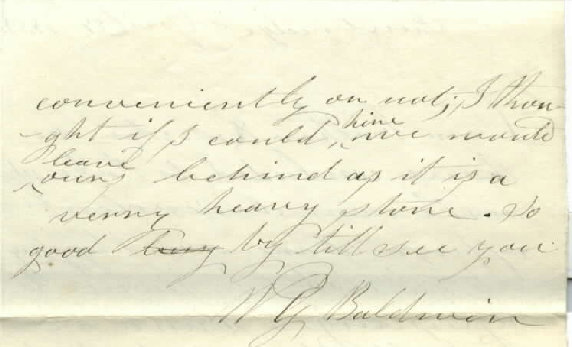 conveniently or not; I thou-
-ght if I could, hire we would
leave ours behind as it is a
verry heavy stove. So
good by till see you
W G Baldwin